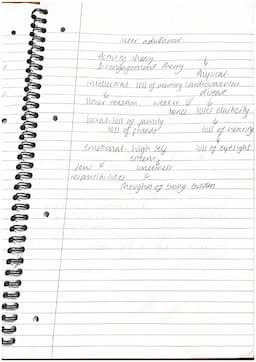 later adulthood
Activity theory ↓
Disengagement theory Physical
intellectual loss of memory cardiovascular
↓ disease
slower reaction weaker ↓ ↓
bones loses elasticity
social-loss of family ↓
loss of friends loss of hearing
↓
emotional-high self loss of eyesight
esteem
few ↓ loneliness
responsibilities ↓
thoughts of being burden